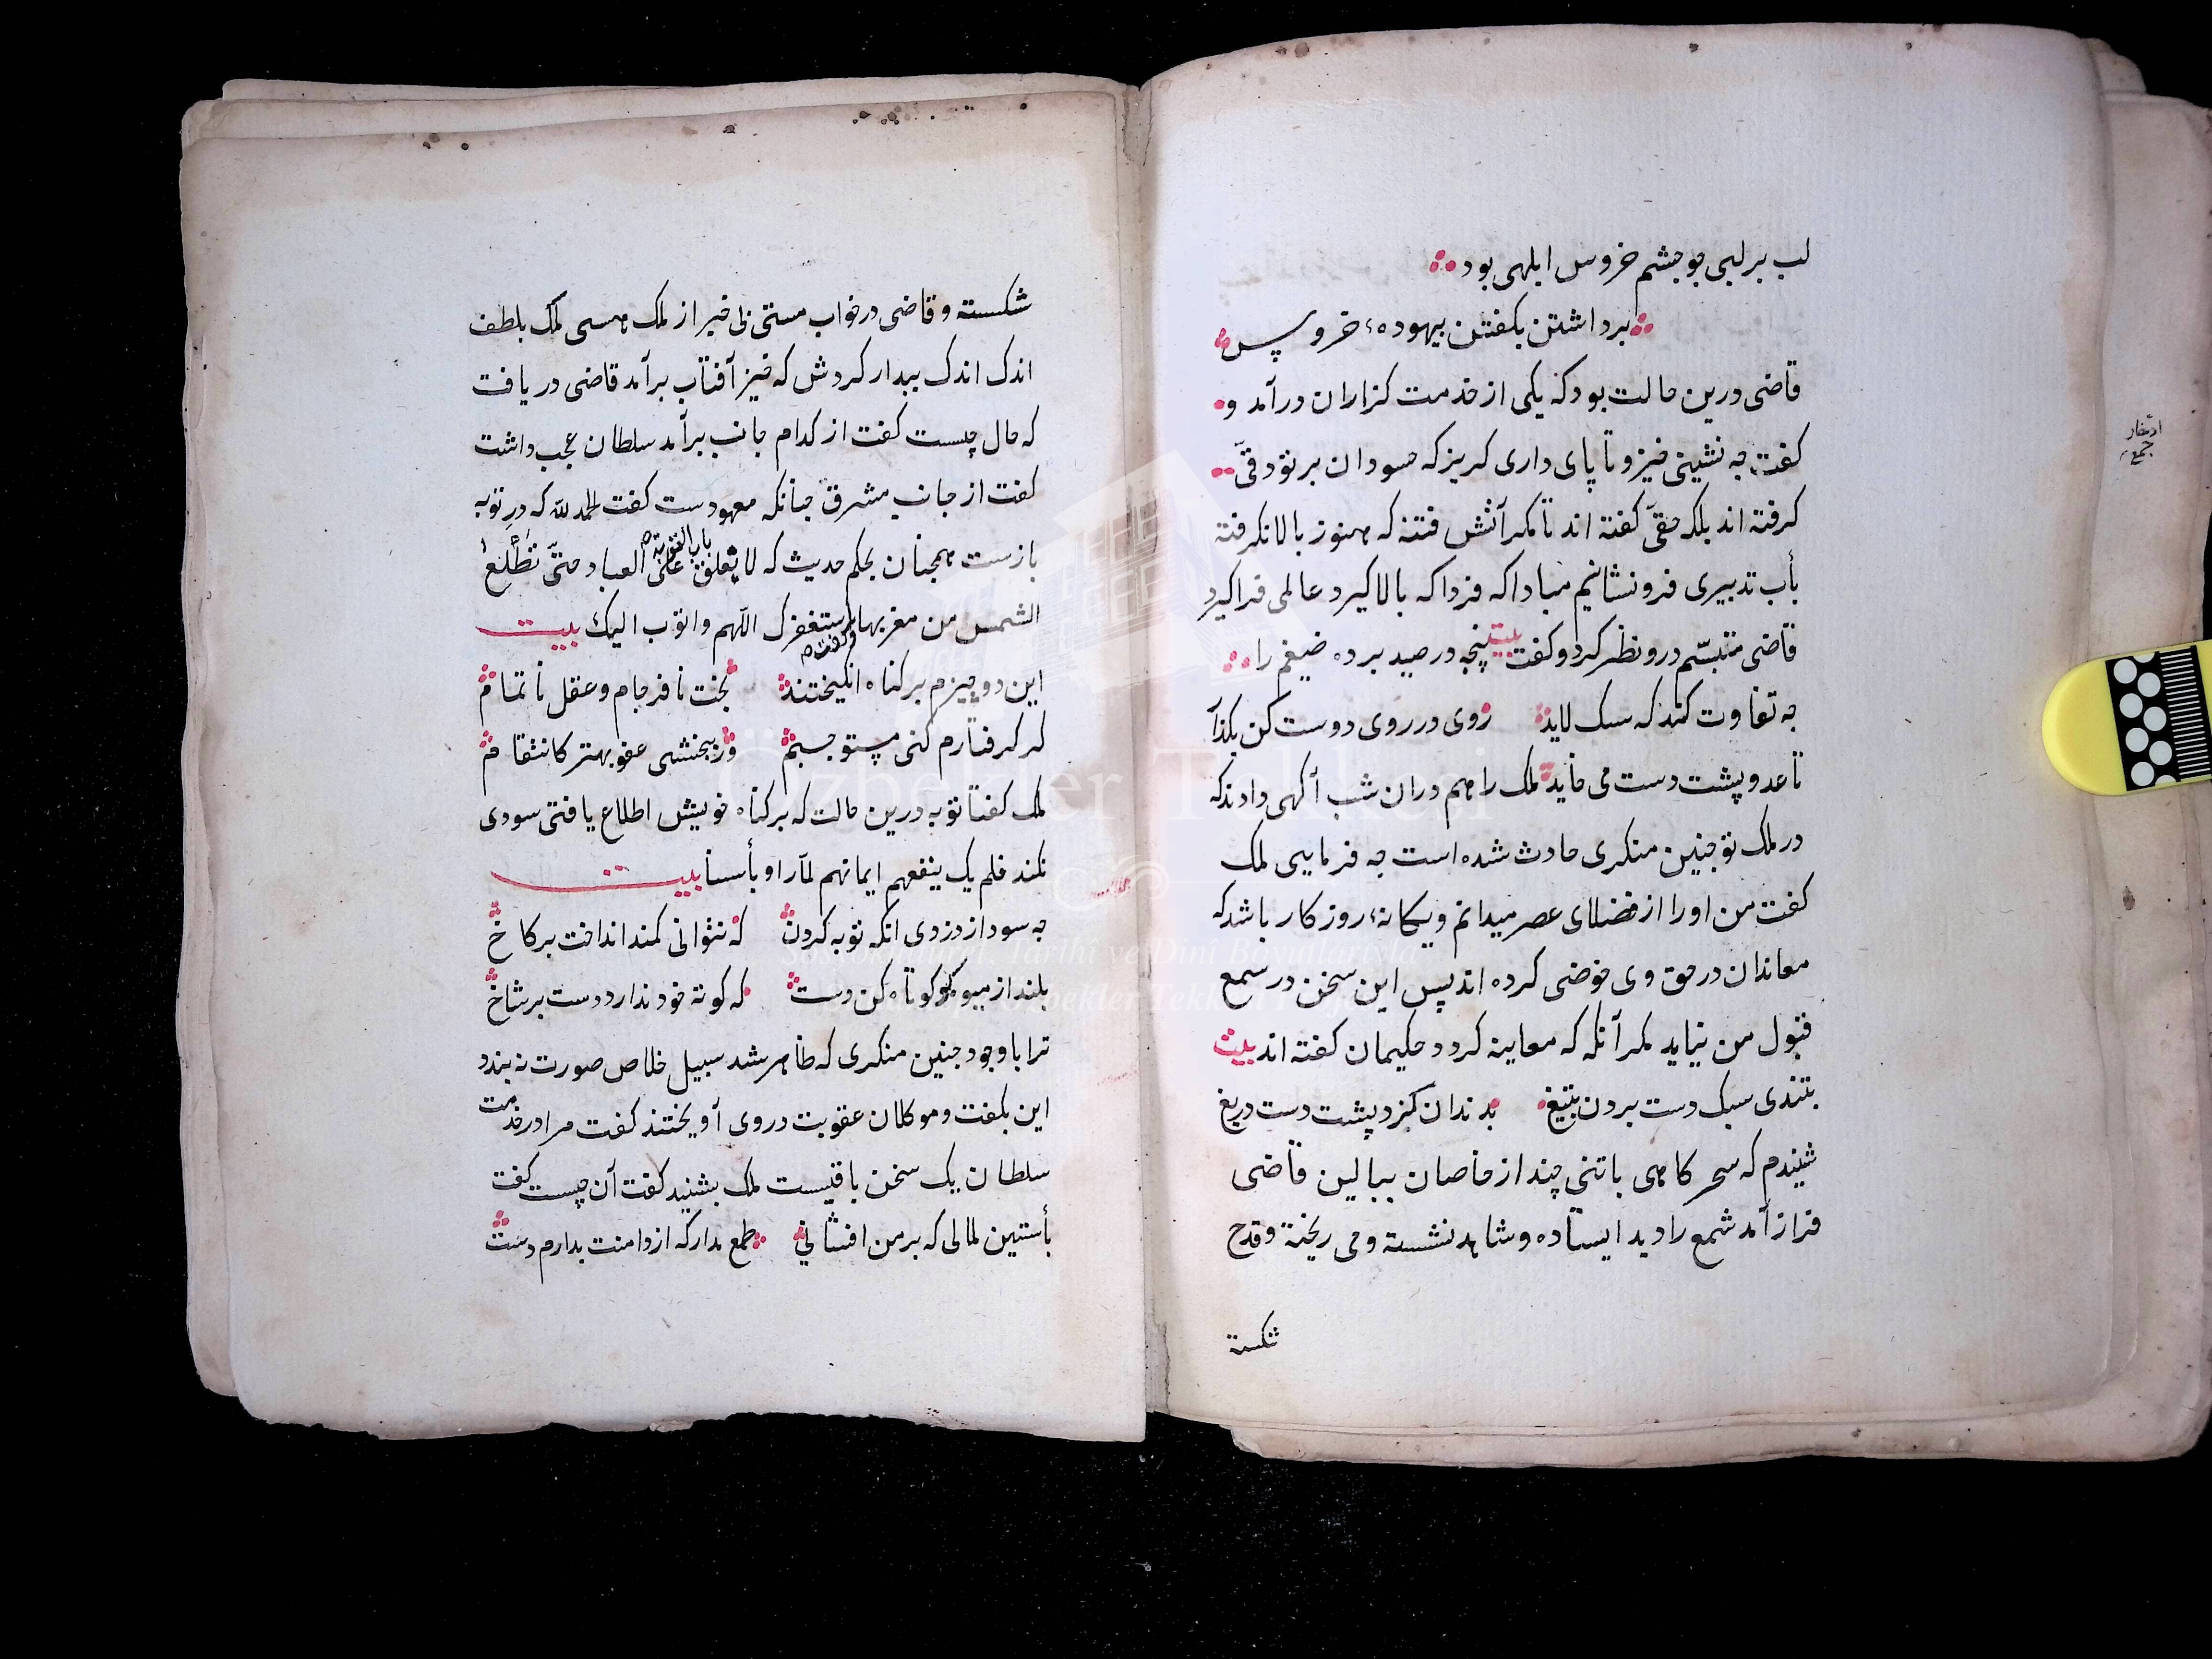 لب بر لبی جو جشم خروس ابلهی بود
برداشتن بکفتن بیهودهٔ خروس
قاضی درین حالت بود که یکی از خدمت کزاران درآمد و
کفت جه نشینی خیز و تا پای داری کریز که حسودان بر تو دقّی
کرفته اند بلکه حقیّ کفته اند تا مکر آتش فتنه که هنوز بالا نکرفته
بأب تدبیری فرو نشانیم مباداکه فرداکه بالا کیرد عالمی فراکیرد
قاضی متبسّم درو نظر کرد و کفت بیت پنجه در صید برده ضیغم را
جه تفاوت کندکه سک لاید روی در روی دوست کن بکذار
تا عدو پشت دست می خاید ملک را هم دران شب آکهی دادندکه
در ملک تو جنین منکری حادث شده است جه فرمایی ملک
کفت من اورا از فضلای عصر میدانم و یکانهٔ روزکار باشدکه
معاندان در حق وی خوضی کرده اند پس این سخن در سمع
قبول من نیاید مکر آنکه که معاینه کردد حکیمان کفته اند بیت
بتندی سبک دست بردن بتیغ بدندان کزد پشت دست دریغ
شنیدم که سحرکاهی باتنی چند از خاصان ببالین قاضی
فراز آمد شمع را دید ایستاده و شاهد نشسته و می ریخته و قدح
شکسته
ادتخار
جمع
شکسته و قاضی در خواب مستی بی خبر از ملک هستی ملک بلطف
اندک اندک بیدار کردش که خیز آفتاب برآمد قاضی دریافت
که حال چیست کفت از کدام جانب برآمد سلطان عجب داشت
کفت از جانب مشرق جنانکه معهودست کفت الحمد لله که در توبه
بازست همجنان بحکم حدیث که لا یغلق باب التوبة علی العباد حتّی تطلع
الشمس من مغربها و کفت استغفرک اللّهم و اتوب الیک بیت
این دو چیزم بر کناه انکیختند بخت نافرجام و عقل ناتمام
کر کرفتارم کنی مستوجبم ور ببخشی عفو بهتر کانتقام
ملک کفتا توبه درین حالت که بر کناه خویش اطلاع یافتی سودی
نکند فلم یک ینفعهم ایمانهم لمّا راو بأسنا بیت
جه سود از دزدی انکه توبه کردن که نتوانی کمند انداخت بر کاخ
بلند از میوه کو کوتاه کن دست که کوته خود ندارد دست بر شاخ
ترا با وجود جنین منکری که ظاهر شد سبیل خلاص صورت نه بندد
این بکفت و موکلان عقوبت در وی آویختند کفت مرا در خدمت
سلطان یک سخن باقیست ملک بشنید کفت آن چیست کفت
بأستین ملالی که بر من افشانی طمع مدارکه از دامنت بدارم دست